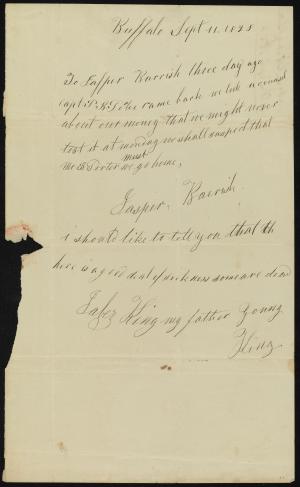 Buffalo Sept 11. 1828
To Jasper Parrish three day ago
capt. came back we
about our money that we might never
it at monday we shall that
Mr Porter must we go home,
Jasper Parrish
i should like to tell you that th
here is a good deal of sickness some are dead
King my father Young
King